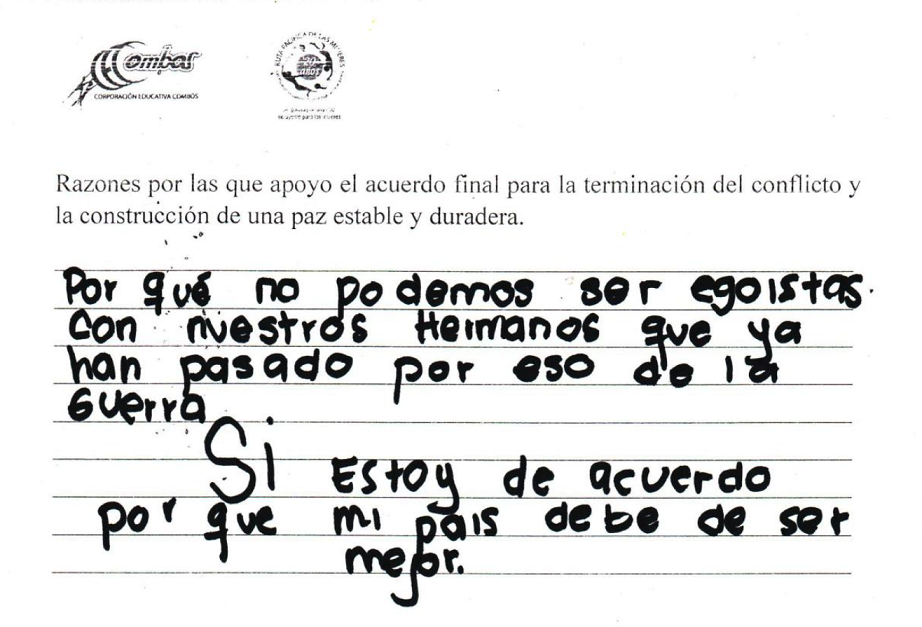 Combos
CORPORACIÓN EDUCATIVA COMBOS
RUTA PACÍFICA DE LAS MUJERES
Razones por las que apoyo el acuerdo final para la terminación del conflicto y
la construcción de una paz estable y duradera.
Por qué no podemos ser egoistas.
con nuestros Hermanos que ya
han pasado por eso de la
Guerra
Si Estoy de acuerdo
por que mi pais debe de ser
mejor.